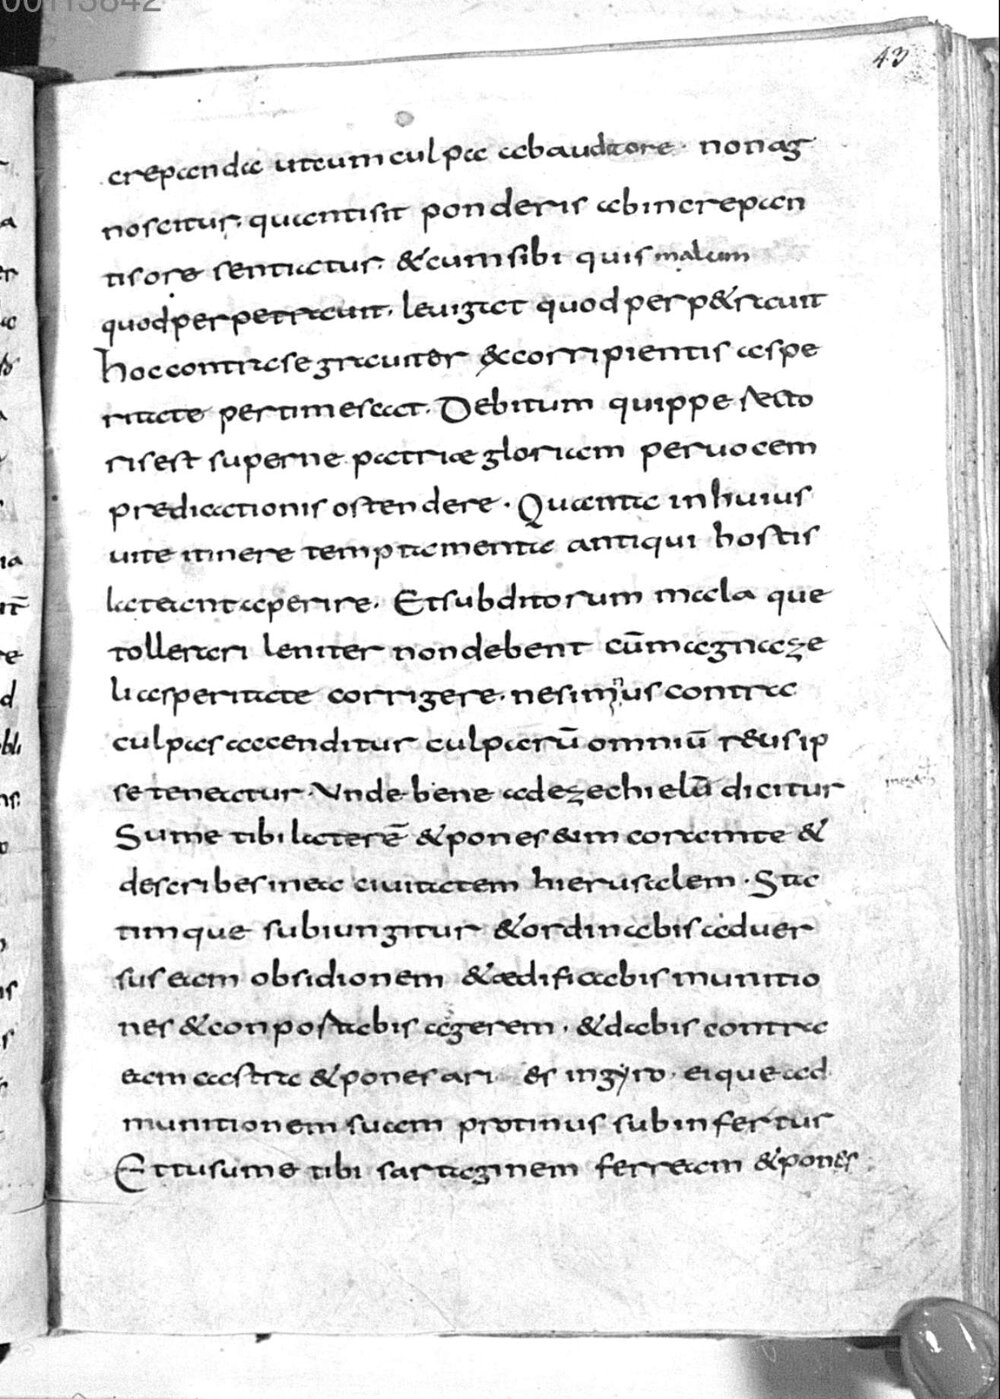 00113842
43
crepanda ut cum culpa ab auditore · non ag
noscitur, quanti sit ponderis ab increpan
tis ore sentiatur. & cum sibi quis malum
quod perpetravit, levigat quod perp&ravit
hoc contra se graviter & corripientis aspe
ritate pertimescat. Debitum quippe recto
ris est superne patriae gloriam per vocem
predicationis ostendere · Quanta in huius
vite itinere temptamenta antiqui hostis
lateant aperire. Et subditorum mala que
tollerari leniter non debent cū magna ze
li asperitate corrigere. ne si minus contra
culpas accenditur culparū omniū reus ip
se teneatur. Unde bene ad ezechielū dicitur
Sume tibi laterē & pones eam coram te &
describes in ea civitatem hierusalem · Sta
tim que subiungitur & ordinabis adver
sus eam obsidionem & aedificabis munitio
nes & conportabis agerem · & dabis contra
eam castra & pones ari es in gyro · eique ad
munitionem suam protinus subinfertur
Et tu sume tibi sartaginem ferream & pones